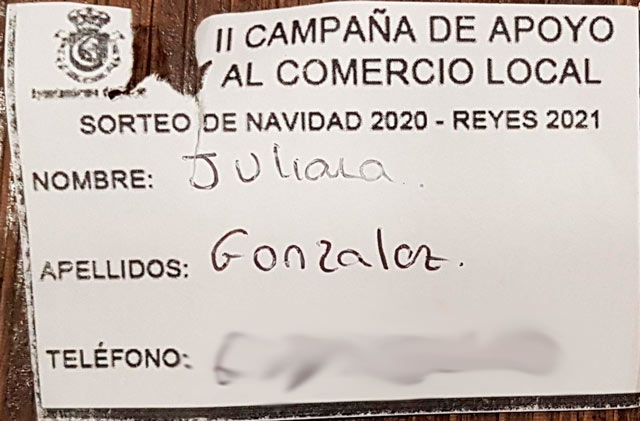 II CAMPAÑA DE APOYO
AL COMERCIO LOCAL
Ayuntamiento de
SORTEO DE NAVIDAD 2020 - REYES 2021
NOMBRE: Juliana.
APELLIDOS: Gonzalez.
TELÉFONO: